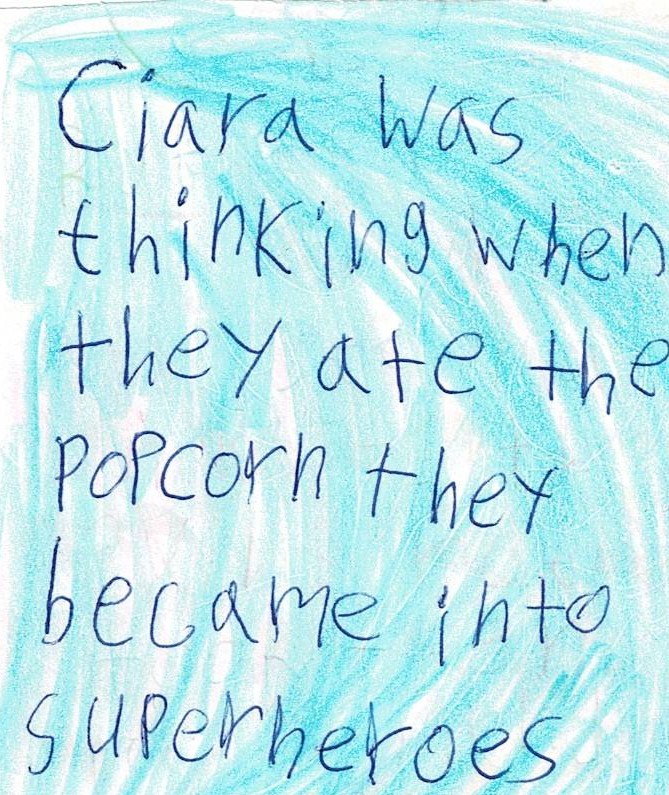 Ciara was
thinking when
they ate the
popcorn they
became into
superheroes